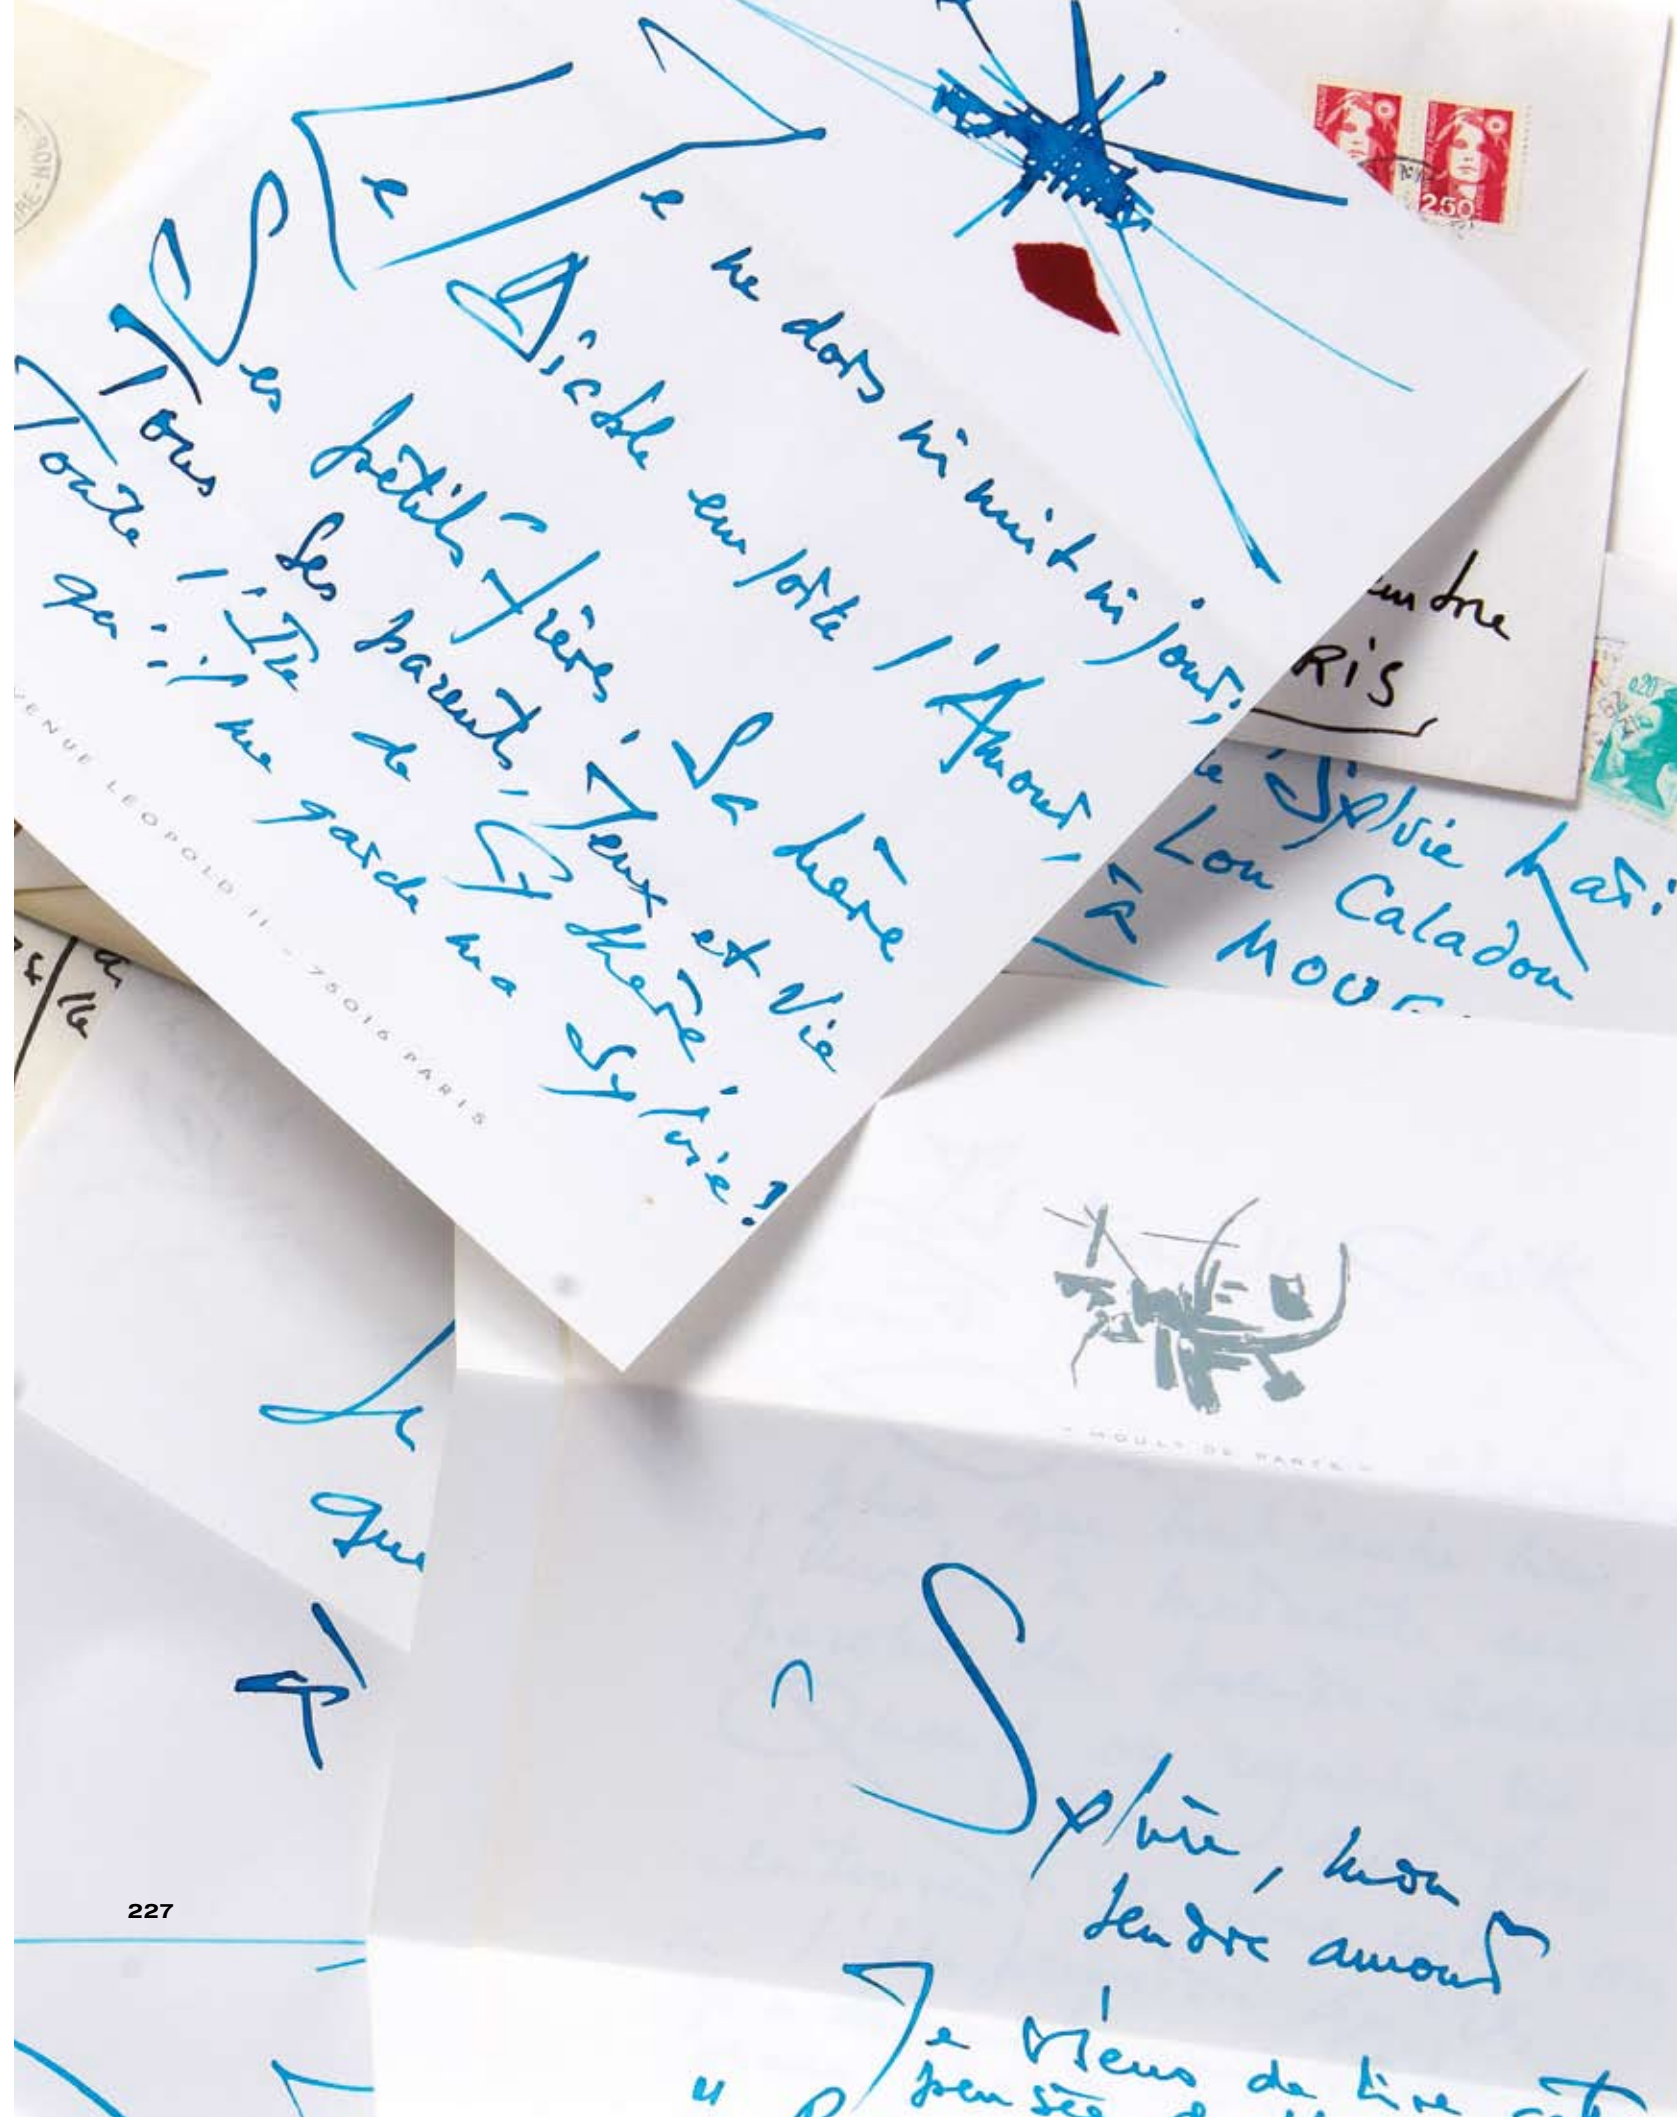 Je ne dors ni nuit ni jour,
Le Diable emporte l'Amour,
Ses petits frères, Sa Mère
Tous Ses parents, Jeux et Vie
Toute l'Ile de Cythère
qu'il me garde ma Sylvie !
VENUE LEOPOLD II - 75016 PARIS
2.50
RIS
0,20
Sylvie
Lou Caladou
à MOUG
que
à
Sylvie, mon
tendre amour
Je viens de lire cet
pensée
227